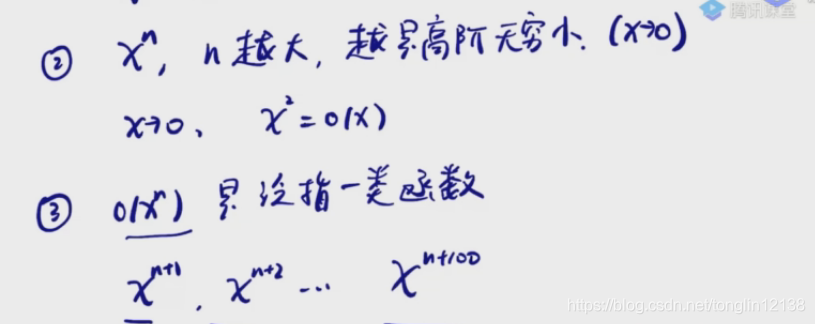 腾讯课堂
② xⁿ, n越大, 越是高阶无穷小. (x→0)
x→0, x² = o(x)
③ o(xⁿ) 是泛指一类函数
xⁿ⁺¹, xⁿ⁺² ... xⁿ⁺¹⁰⁰
https://blog.csdn.net/tonglin12138